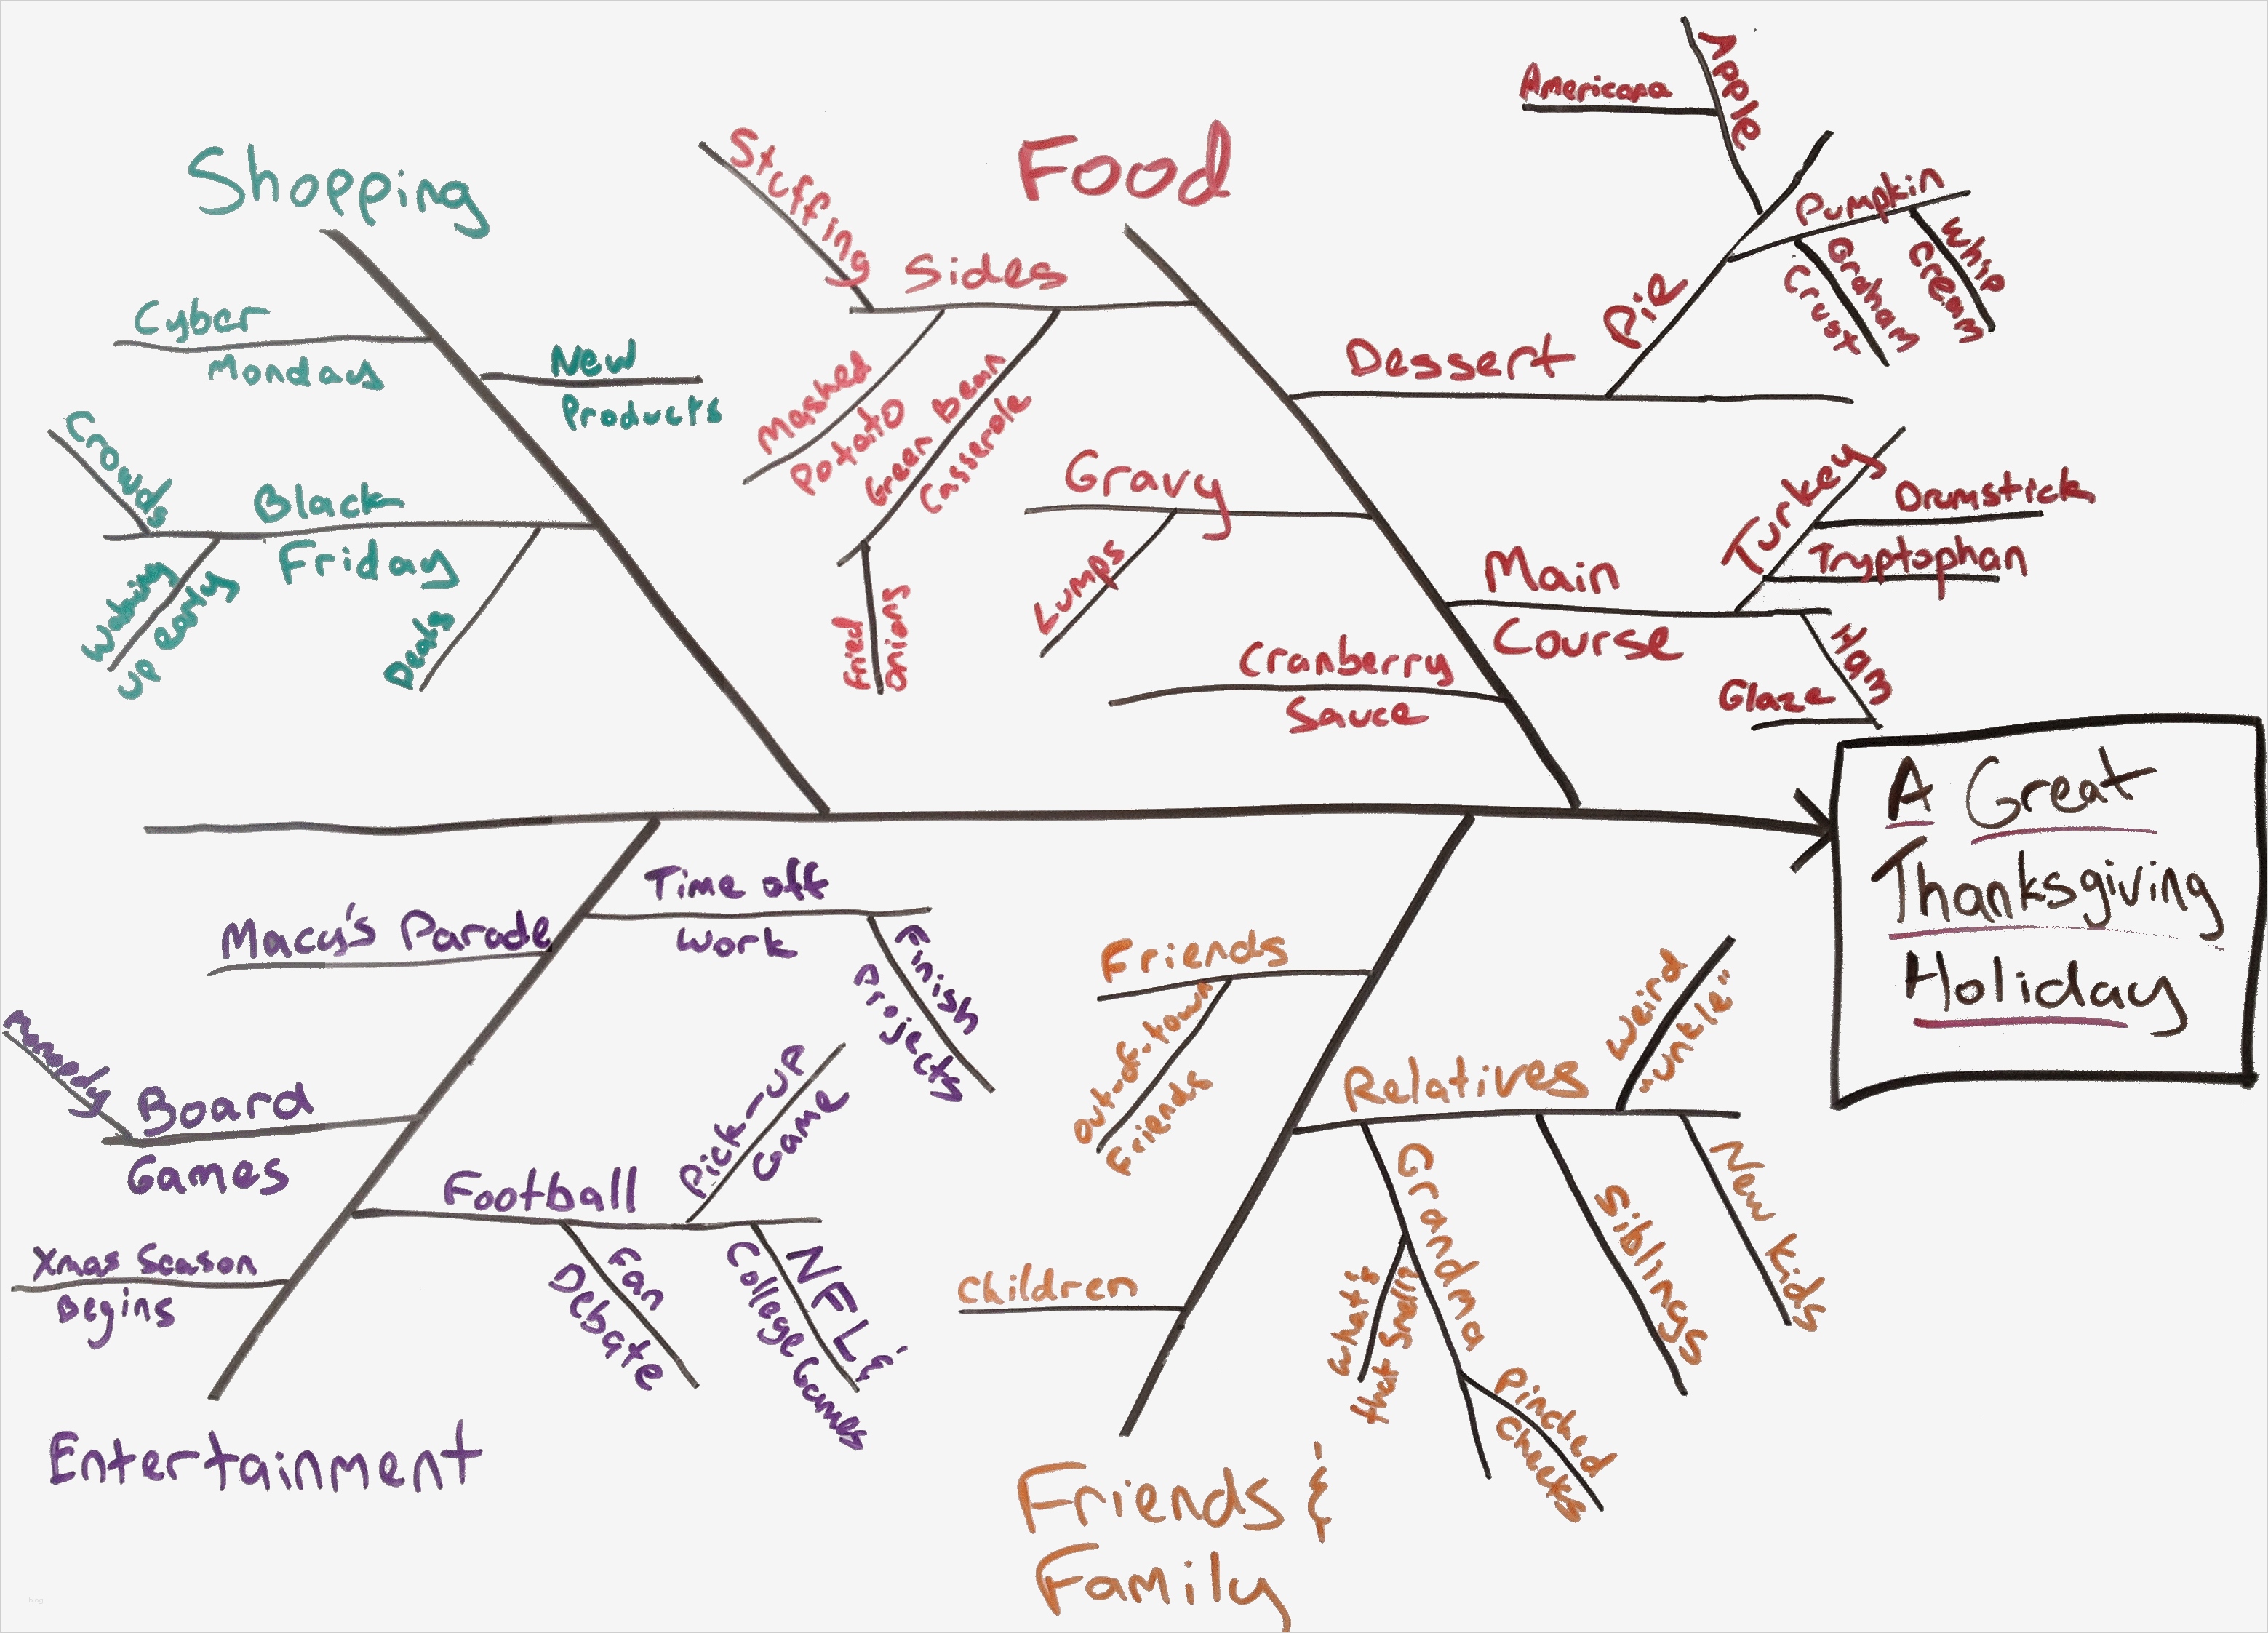 Shopping
Cyber
Mondays
New
Products
Crowds
Black
Friday
Waking
up early
Deals
Food
Stuffing
Sides
Mashed
Potato
Green bean
Casserole
Fried
onions
Gravy
Lumps
Cranberry
Sauce
Dessert
Pie
Apple
Americana
Pumpkin
Graham
Crust
Whip
Cream
Main
Course
Turkey
Drumstick
Tryptophan
Ham
Glaze
A Great
Thanksgiving
Holiday
Time off
work
Finish
Projects
Macy's Parade
Board
Games
Football
Pick-up
Game
Fan
Debate
NFL &
College Games
Xmas Season
Begins
Entertainment
Friends
Out-of-town
Friends
Relatives
Weird
"unkle"
Grandma
What's
that Smell?
Pinched
Cheeks
Siblings
New Kids
Children
Friends &
Family
blog